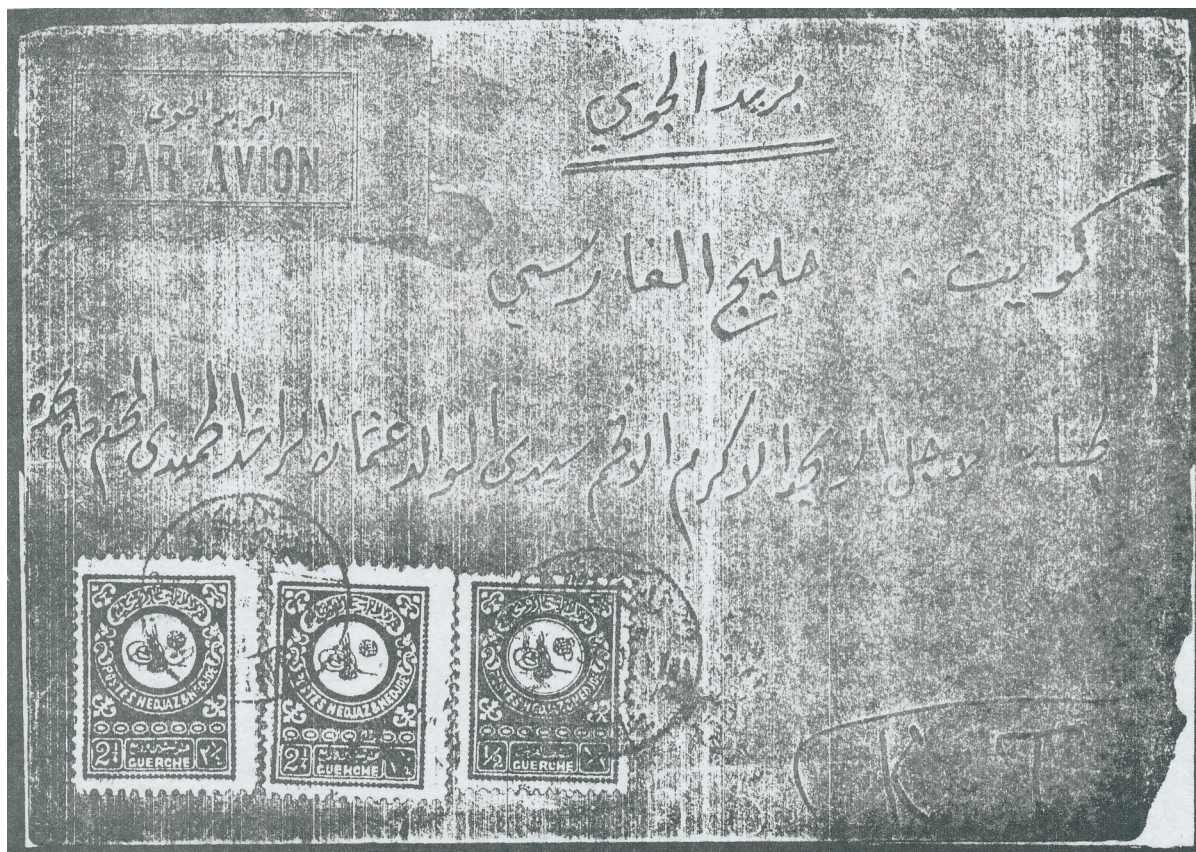 البريد الجوي
PAR AVION
بريد الجوي
كويت . خليج الفارسي
الاجل الامجد الاكرم الافخم سيدي الوالد عثمان الراشد الحميدي المحترم
POSTES HEDJAZ & NEDJDE
2¼ GUERCHE ٢¼
POSTES HEDJAZ & NEDJDE
2¼ GUERCHE
POSTES HEDJAZ & NEDJDE
½ GUERCHE